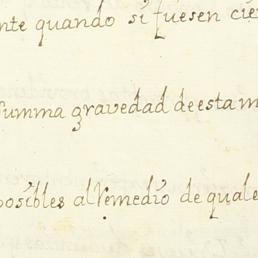 nte quando si fuesen cie
summa gravedad de esta m
posibles al remedio de quale